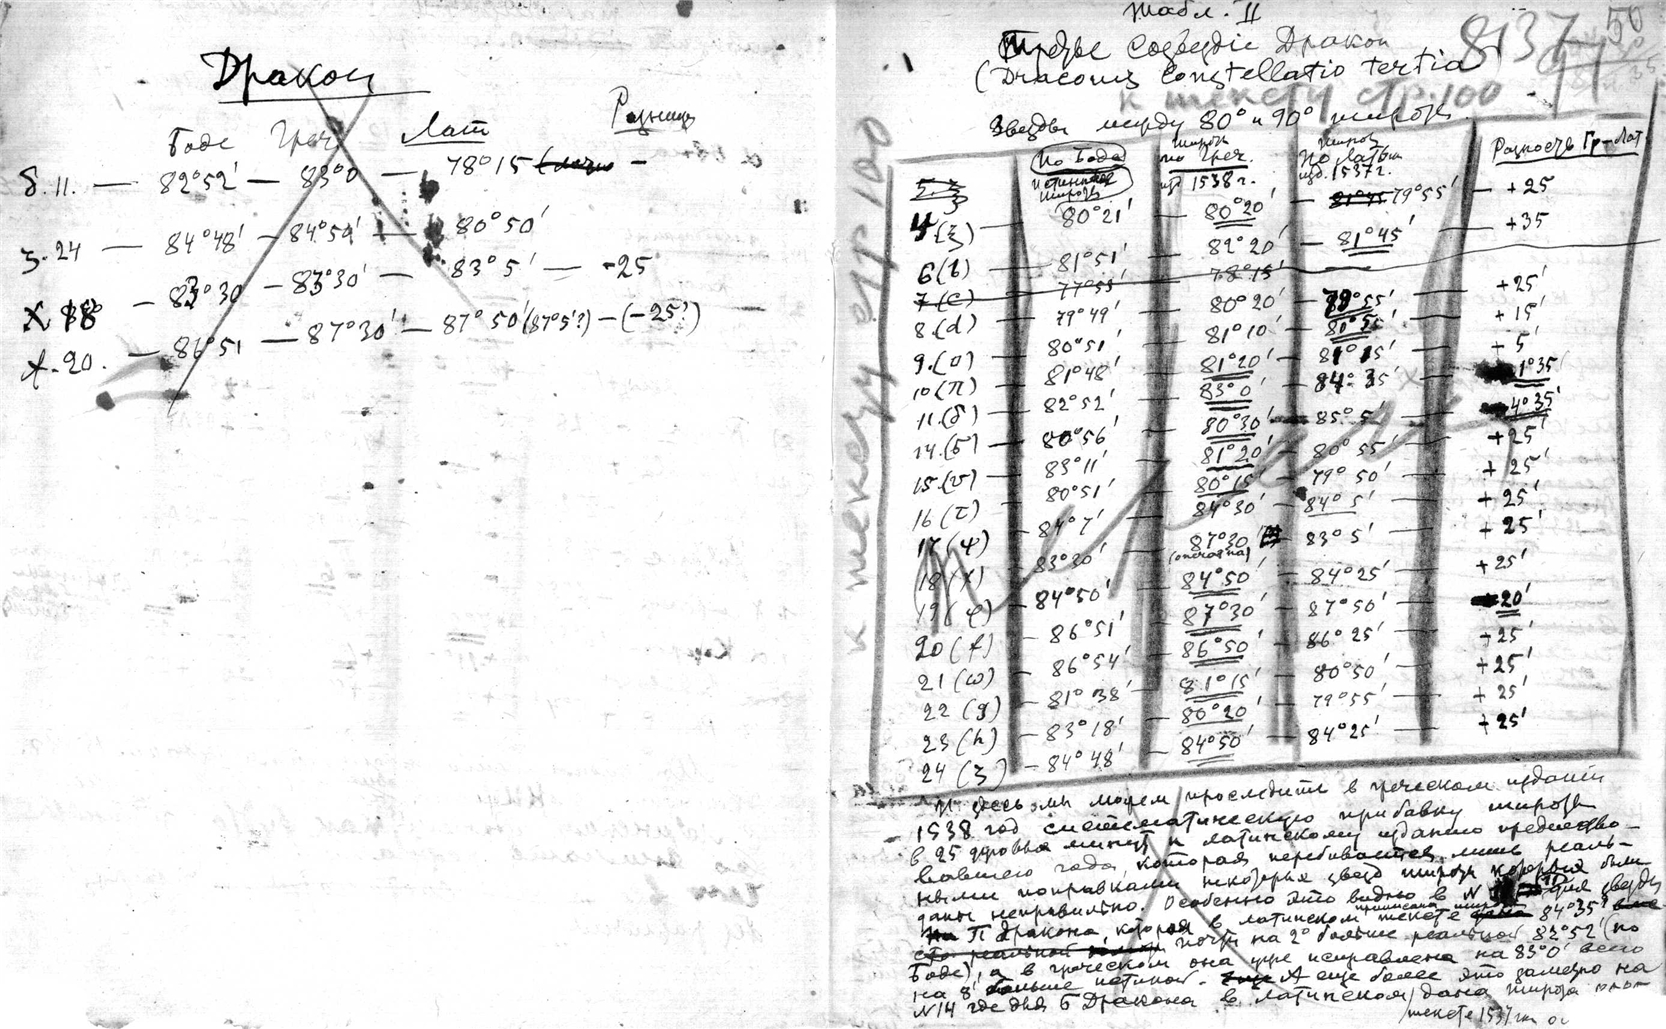 Дракон
Боде Греч Лат Разниц
δ. 11. — 82°52' — 83°0 — 78°15 —
ξ. 24 — 84°48' — 84°50' — 80°50'
χ 18 — 83°30 — 83°30' — 83°5' — -25
f. 20. — 86°51 — 87°30' — 87°50' (87°5'?) — (-25?)
Табл. II
50
8137
Третье Созвездие Дракон
(Draconis Constellatio tertia)
к тексту стр. 100
Звезды между 80° и 90° широты
к тексту стр 100
По Боде широты по Греч. изд 1538 г. По Латын изд. 1537 г. Разность Гр-Лат
истинная широта
80°21' — 80°20' — 79°55' — +25
6 — 81°51' 82°20' — 81°45' — +35
7 (c) — 77°55' 78°15'
8. (d) — 79°49' 80°20' — 79°55' +25'
9. (o) — 80°51' 81°10' — 80°55' +15'
10 (π) — 81°48' — 81°20' — 81°15' + 5'
11. (δ) — 82°52' — 83°0' — 84°35' 1°35'
14. — 80°56' — 80°30' 85°5' 4°35'
15. (υ) — 83°11' — 81°20' 80°55' +25'
16 (τ) — 80°51' — 80°15' — 79°50' + 25'
17 (ψ) — 84°7' 84°30' — 84°5' + 25'
18 (χ) — 83°30' 87°30' 83°5' + 25'
(опечатка)
19 (φ) — 84°50' — 84°50' — 84°25' +25'
20 (f) — 86°51' — 87°30' — 87°50' 20'
21 (ω) — 86°54' — 86°50' — 86°25' +25'
22 (g) — 81°38' — 81°15' — 80°50' +25'
23 (h) — 83°18' — 80°20' — 79°55' + 25'
24 (ξ) — 84°48' — 84°50' — 84°25' +25'
И здесь мы можем проследить в греческом издании
1538 год систематическую прибавку широты
в 25 минут к латинскому изданию предшество-
вавшего года, которая перебивается лишь реаль-
ными поправками некоторых звезд широты которых были
даны неправильно. Особенно это видно в N для звезды
Дракона, которая в латинском тексте приписана широта 84°35'
почти на 2° больше реальной 82°52' (по
Боде), а в греческом она уже исправлена на 83°0' всего
на 8' больше истиной. А еще более это заметно на
N14 где для Дракона в латинском дана широта
тексте 1537